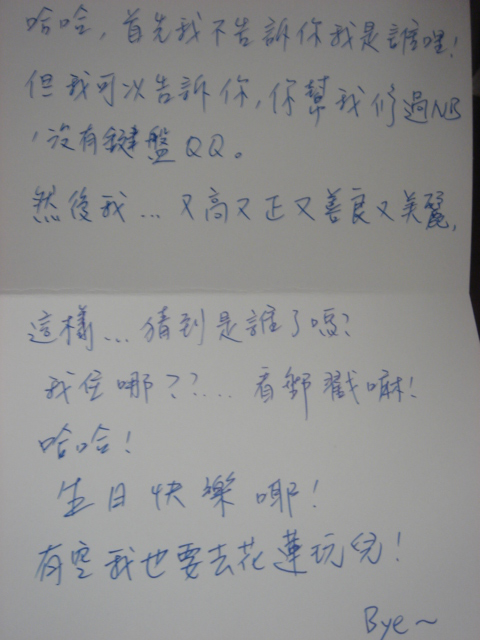 哈哈，首先我不告訴你我是誰哩!
但我可以告訴你，你幫我修過NB
，沒有鍵盤QQ。
然後我...又高又正又善良又美麗，
這樣...猜到是誰了嗎?
我住哪??...看郵戳嘛!
哈哈!
生日快樂耶!
有空我也要去花蓮玩兒!
Bye~